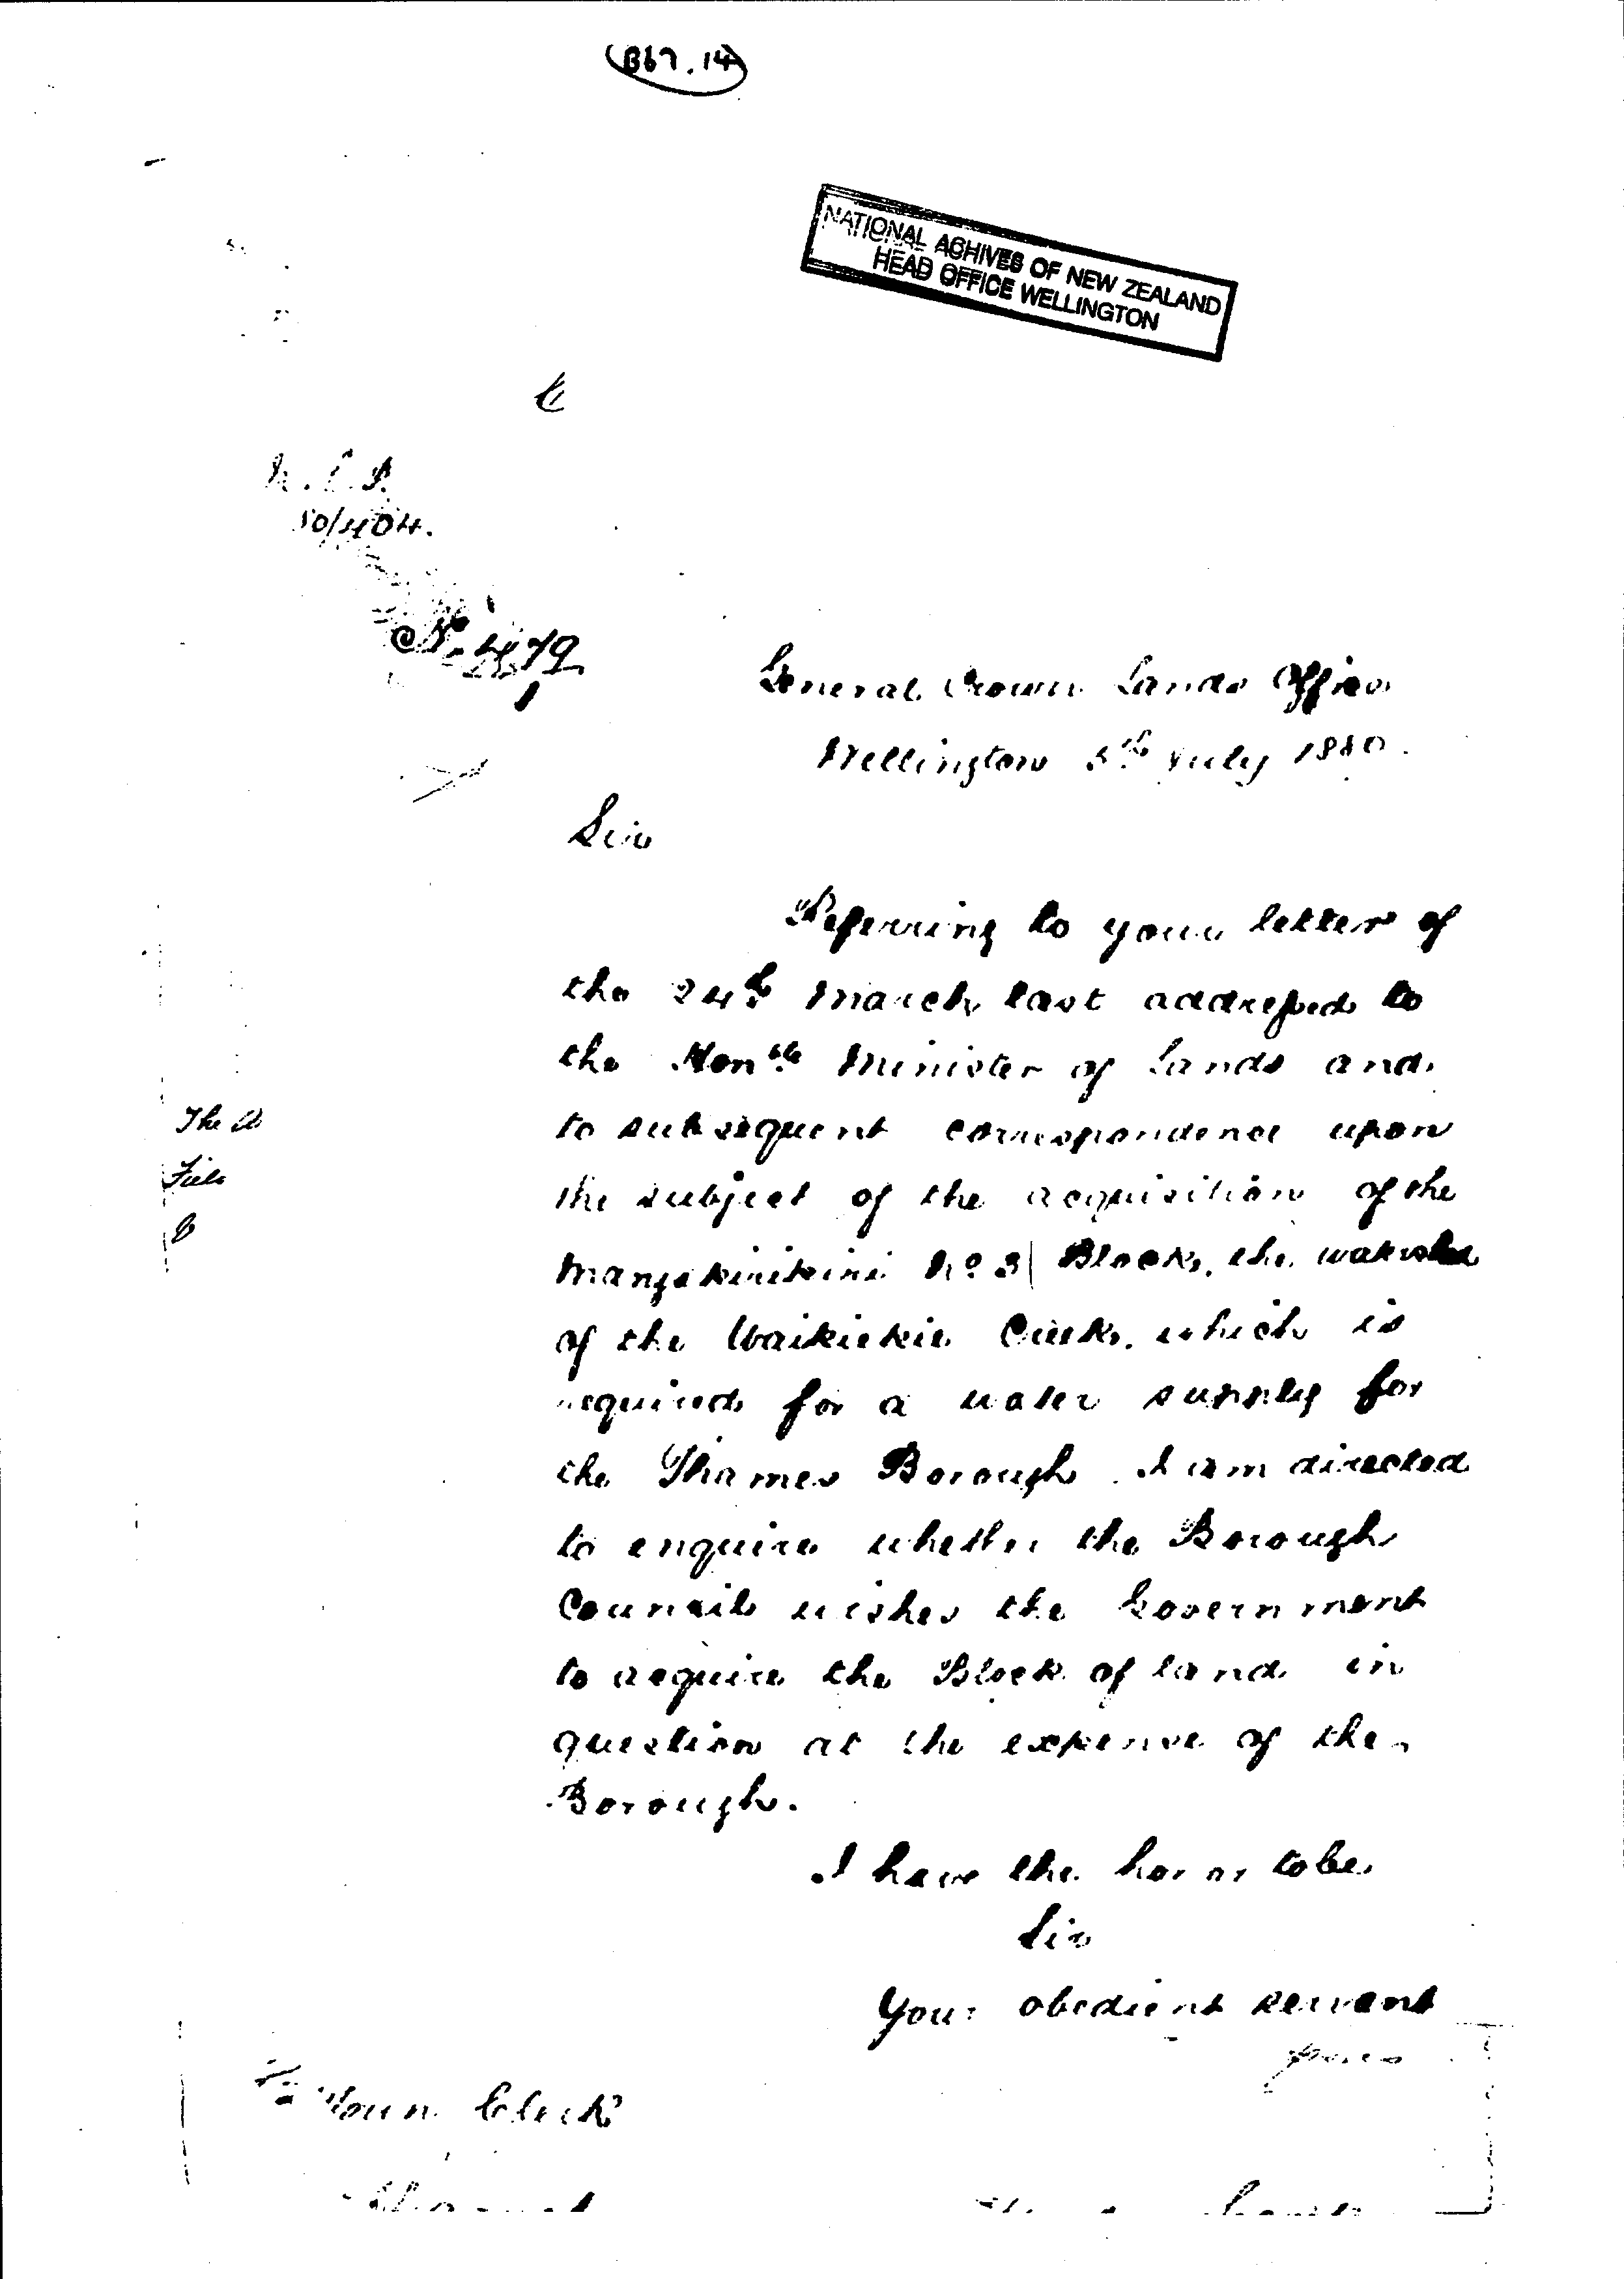 B67.14
NATIONAL ACHIVES OF NEW ZEALAND
HEAD OFFICE WELLINGTON
50/404.
No. 479
General Crown Lands Office
Wellington 5th July 1880.
Sir
Referring to your letter of
the 24th March last addressed to
the Honble Minister of Lands and
to subsequent correspondence upon
the subject of the acquisition of the
Mangakirikiri No. 3 Block, the watershed
of the Waikiekie Creek, which is
required for a water supply for
the Thames Borough. I am directed
to enquire whether the Borough
Council wishes the Government
to acquire the Block of land in
question at the expense of the
Borough.
I have the honor to be
Sir
Your obedient servant
The
Town Clerk